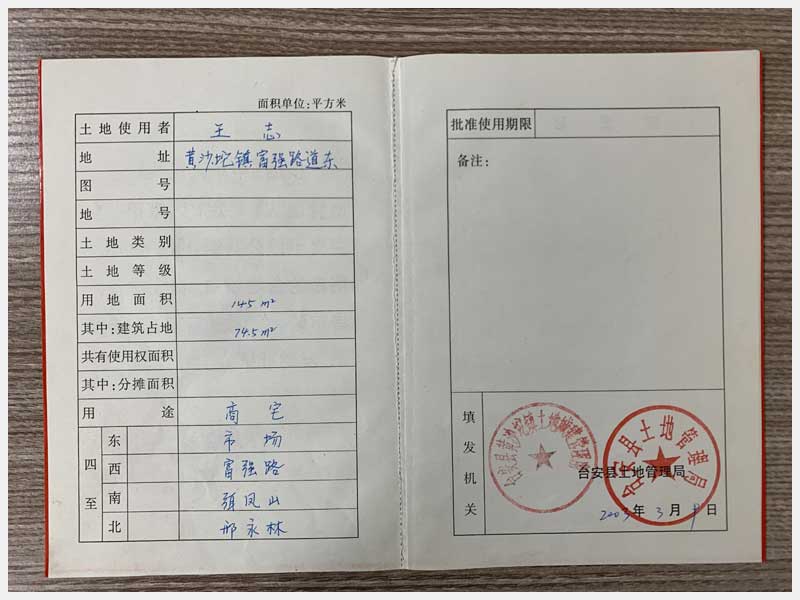 面积单位:平方米
土地使用者 王志
地址 黄沙坨镇富强路道东
图号
地号
土地类别
土地等级
用地面积 145m²
其中:建筑占地 74.5m²
共有使用权面积
其中:分摊面积
用途 商宅
四至
东 市场
西 富强路
南 张凤山
北 邢永林
批准使用期限
备注:
填发机关
台安县黄沙坨镇土地城建管理所
台安县土地管理局
台安县土地管理局
2003年3月 日